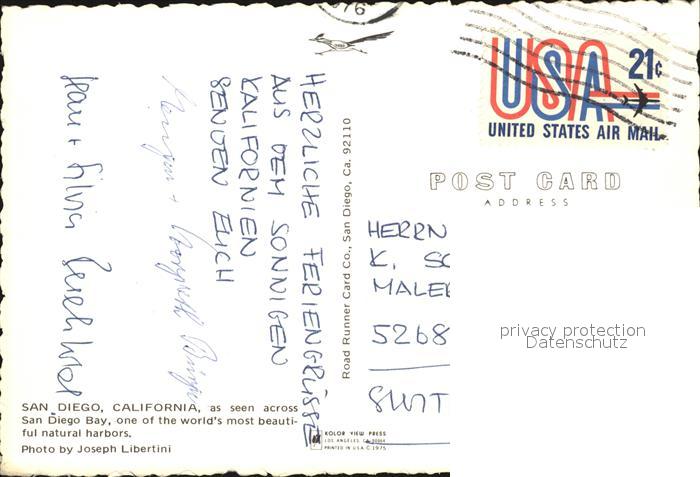 HERZLICHE FERIENGRÜSSE
AUS DEM SONNIGEN
KALIFORNIEN
SENDEN EUCH
+
+ Silvia
SAN DIEGO, CALIFORNIA, as seen across
San Diego Bay, one of the world's most beauti-
ful natural harbors.
Photo by Joseph Libertini
Road Runner Card Co., San Diego, Ca. 92110
KOLOR VIEW PRESS
LOS ANGELES, CA
PRINTED IN USA © 1975
976
USA 21¢
UNITED STATES AIR MAIL
POST CARD
ADDRESS
HERRN
K. SC
MALE
5268
SWIT
privacy protection
Datenschutz